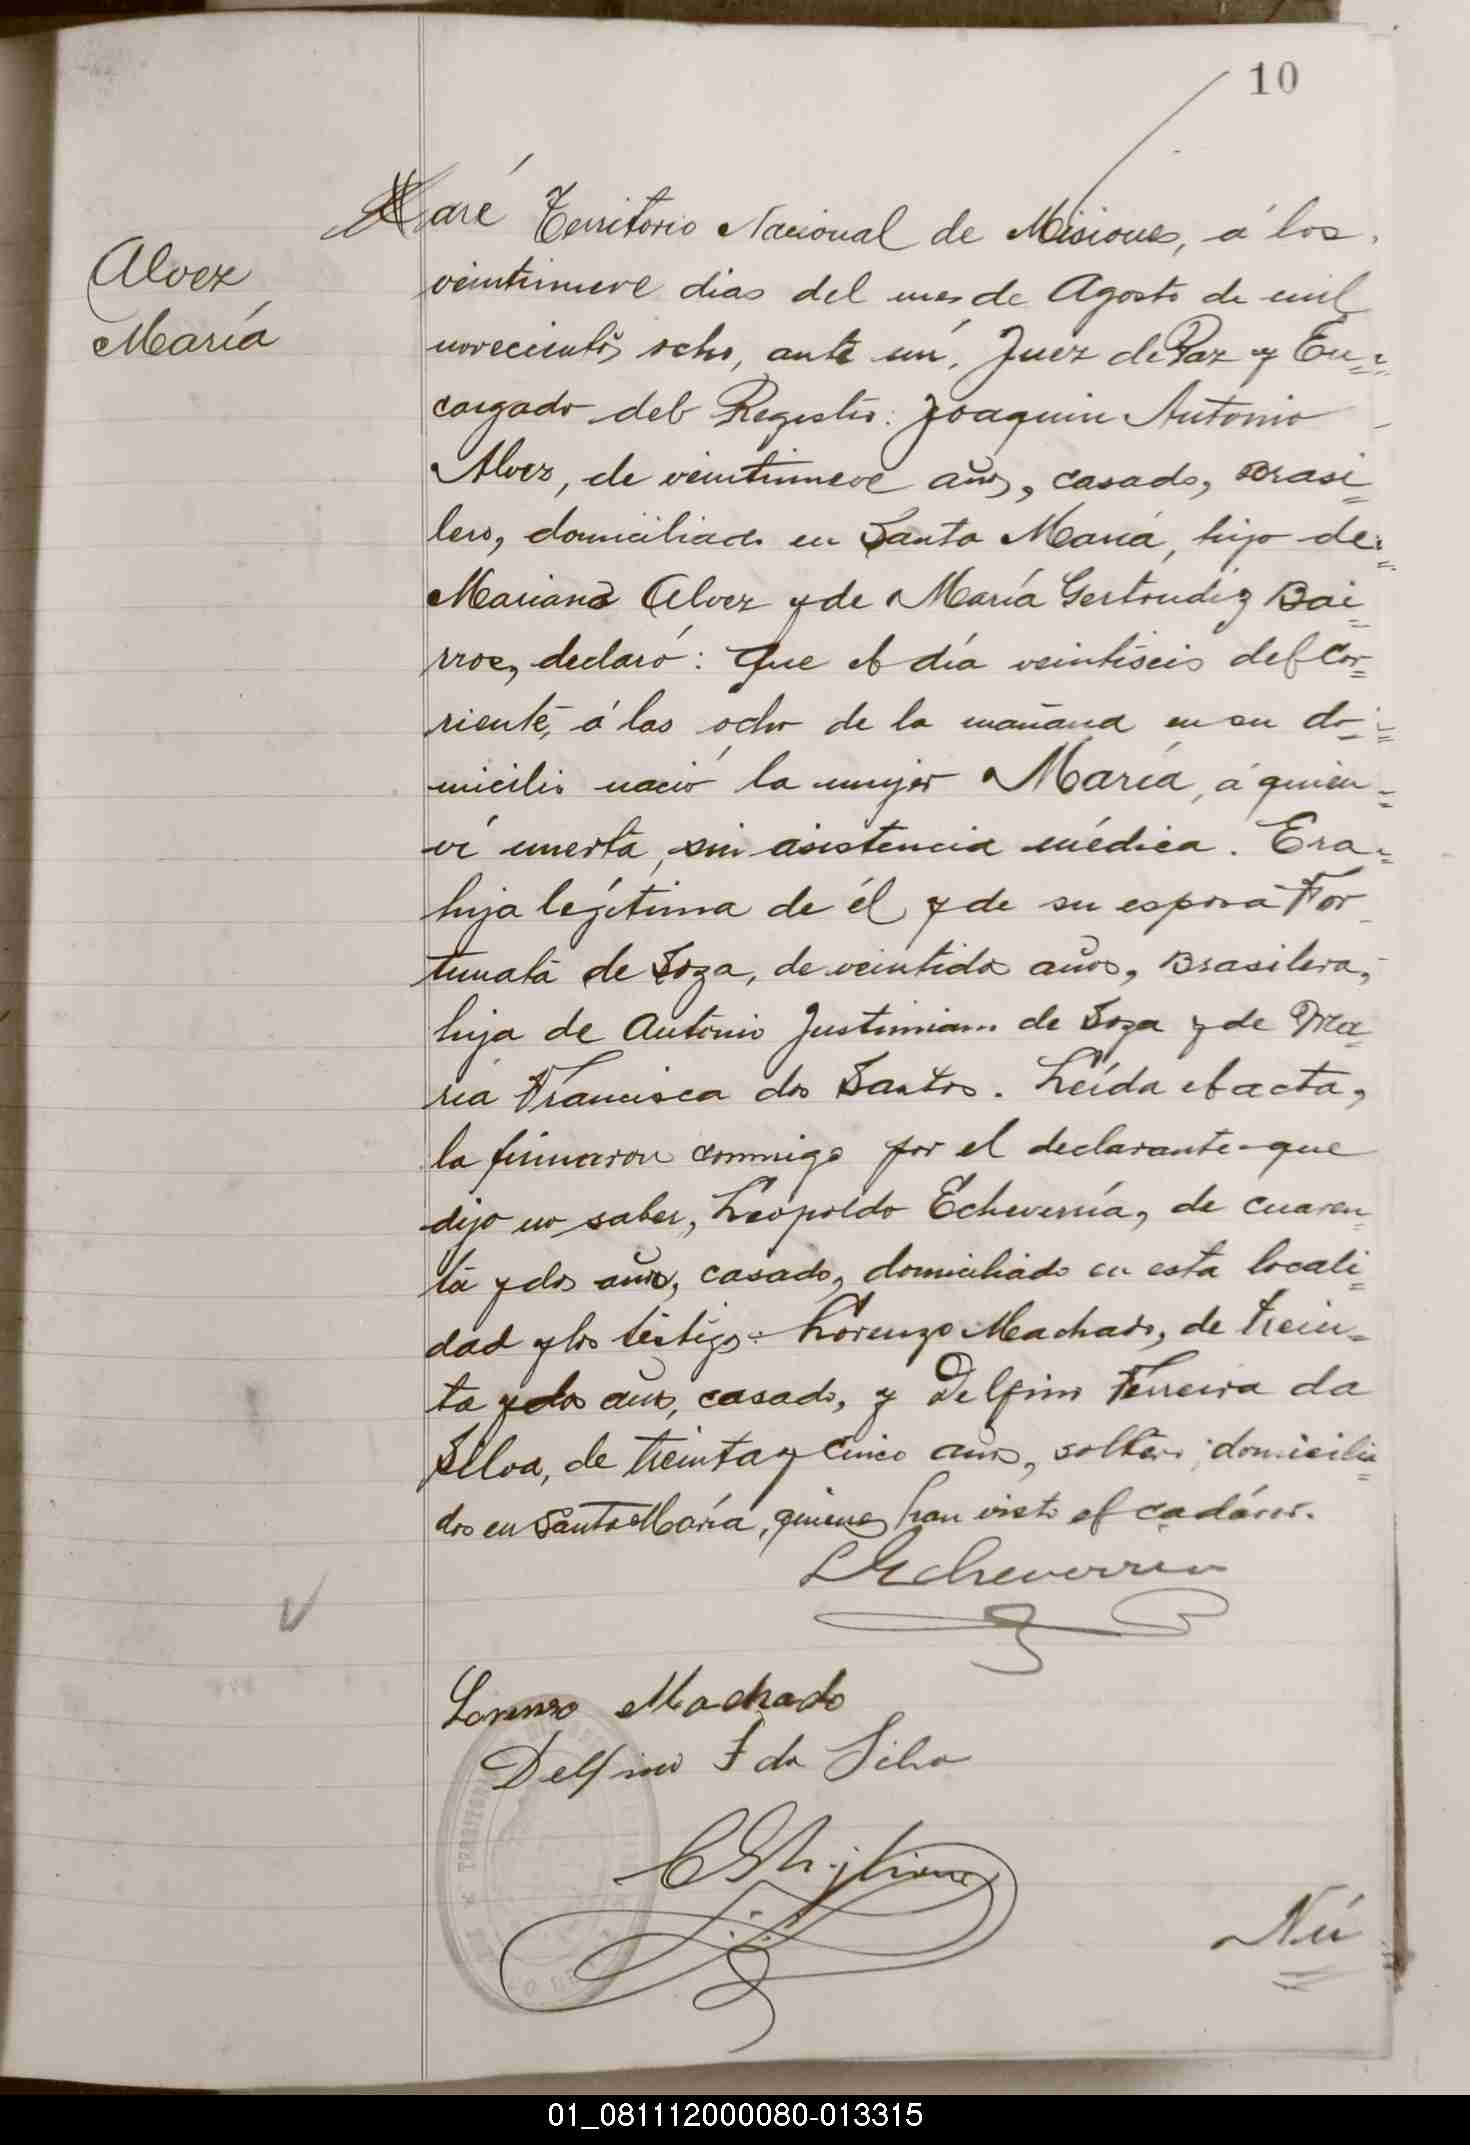 10
Alvez
María
aré Territorio Nacional de Misiones, á los
veintinueve dias del mes de Agosto de mil
novecientos ocho, ante mí, Juez de Paz y En-
cargado del Registro: Joaquin Antonio
Alvez, de veintinueve años, casado, Brasi-
lero, domiciliado en Santa María, hijo de
Mariano Alvez y de María Gertrudiz Bai-
rros, declaró: Que el día veintiseis del cor-
riente, á las ocho de la mañana en su do-
micilio nació la mujer María, á quien
ví muerta, sin asistencia médica. Era
hija legítima de él y de su esposa For-
tunata de Soza, de veintidos años, Brasilera,
hija de Antonio Justiniano de Soza y de Ma-
ria Francisca dos Santos. Leída el acta,
la firmaron conmigo por el declarante que
dijo no saber, Leopoldo Echeverría, de cuaren-
ta y dos años, casado, domiciliado en esta locali-
dad y los testigos: Lorenzo Machado, de trein-
ta y dos años, casado, y Delfino Ferreira da
Silva, de treinta y cinco años, soltero, domicilia-
dos en Santa María, quienes han visto el cadáver.
LEcheverria
Lorenzo Machado
Delfino F da Silva
TERRITORIO
Nú
01_081112000080-013315